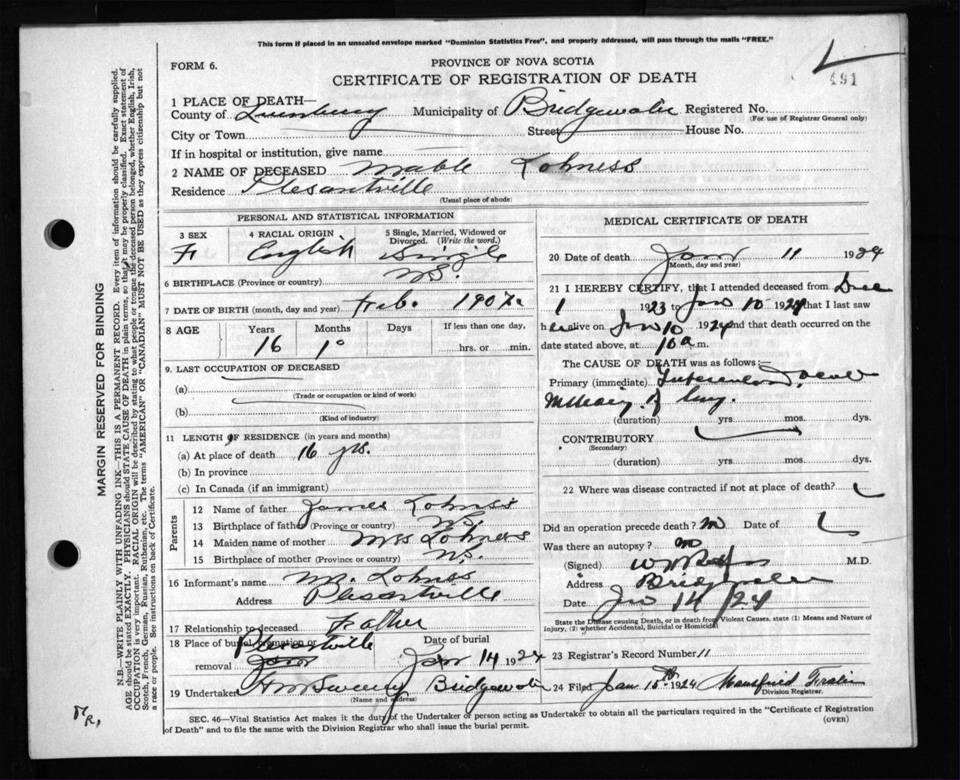 This form if placed in an unsealed envelope marked "Dominion Statistics Free", and properly addressed, will pass through the mails "FREE."
FORM 6.
PROVINCE OF NOVA SCOTIA
CERTIFICATE OF REGISTRATION OF DEATH
491
1 PLACE OF DEATH—
County of Lunenburg Municipality of Bridgewater Registered No.
(For use of Registrar General only)
City or Town Street House No.
If in hospital or institution, give name
2 NAME OF DECEASED Mable Lohness
Residence Plesantville
(Usual place of abode)
PERSONAL AND STATISTICAL INFORMATION
3 SEX 4 RACIAL ORIGIN 5 Single, Married, Widowed or Divorced. (Write the word.)
F English Single
6 BIRTHPLACE (Province or country) N.S.
7 DATE OF BIRTH (month, day and year) Feb. 1907
8 AGE Years Months Days If less than one day,
16 10 hrs. or min.
9. LAST OCCUPATION OF DECEASED
(a)
(Trade or occupation or kind of work)
(b)
(Kind of industry)
11 LENGTH OF RESIDENCE (in years and months)
(a) At place of death 16 yrs.
(b) In province
(c) In Canada (if an immigrant)
Parents
12 Name of father James Lohness
13 Birthplace of father (Province or country) N.S.
14 Maiden name of mother Miss Lohness
15 Birthplace of mother (Province or country) N.S.
16 Informant's name Mr. Lohness
Address Plesantville
17 Relationship to deceased Father
18 Place of burial, cremation or removal Plesantville
Date of burial Jan 14 1924
19 Undertaker Bridgewater
(Name and address)
MEDICAL CERTIFICATE OF DEATH
20 Date of death Jan 11 1924
(Month, day and year)
21 I HEREBY CERTIFY, that I attended deceased from Dec
1 1923 to Jan 10 1924 that I last saw
h er alive on Jan 10 1924 and that death occurred on the
date stated above, at 10 a.m.
The CAUSE OF DEATH was as follows:—
Primary (immediate)
(duration) yrs. mos. dys.
CONTRIBUTORY
(Secondary)
(duration) yrs. mos. dys.
22 Where was disease contracted if not at place of death?
Did an operation precede death? no Date of
Was there an autopsy? no
(Signed) M.D.
Address Bridgewater
Date Jan 14 /24
State the Disease causing Death, or in death from Violent Causes, state (1) Means and Nature of Injury, (2) whether Accidental, Suicidal or Homicidal
23 Registrar's Record Number 11
24 Filed Jan 15th 1924
Division Registrar.
SEC. 46—Vital Statistics Act makes it the duty of the Undertaker or person acting as Undertaker to obtain all the particulars required in the "Certificate of Registration
of Death" and to file the same with the Division Registrar who shall issue the burial permit.
(OVER)
MARGIN RESERVED FOR BINDING
N.B.—WRITE PLAINLY WITH UNFADING INK—THIS IS A PERMANENT RECORD. Every item of information should be carefully supplied.
AGE should be stated EXACTLY. PHYSICIANS should STATE CAUSE OF DEATH in plain terms, so that it may be properly classified. Exact statement of
OCCUPATION is very important. RACIAL ORIGIN will be described by stating to what people or tongue the deceased person belonged, whether English, Irish,
Scotch, French, German, Russian, Ruthenian, etc. The terms "AMERICAN" OR "CANADIAN" MUST NOT BE USED as they express citizenship but not
a race or people. See instructions on back of Certificate.